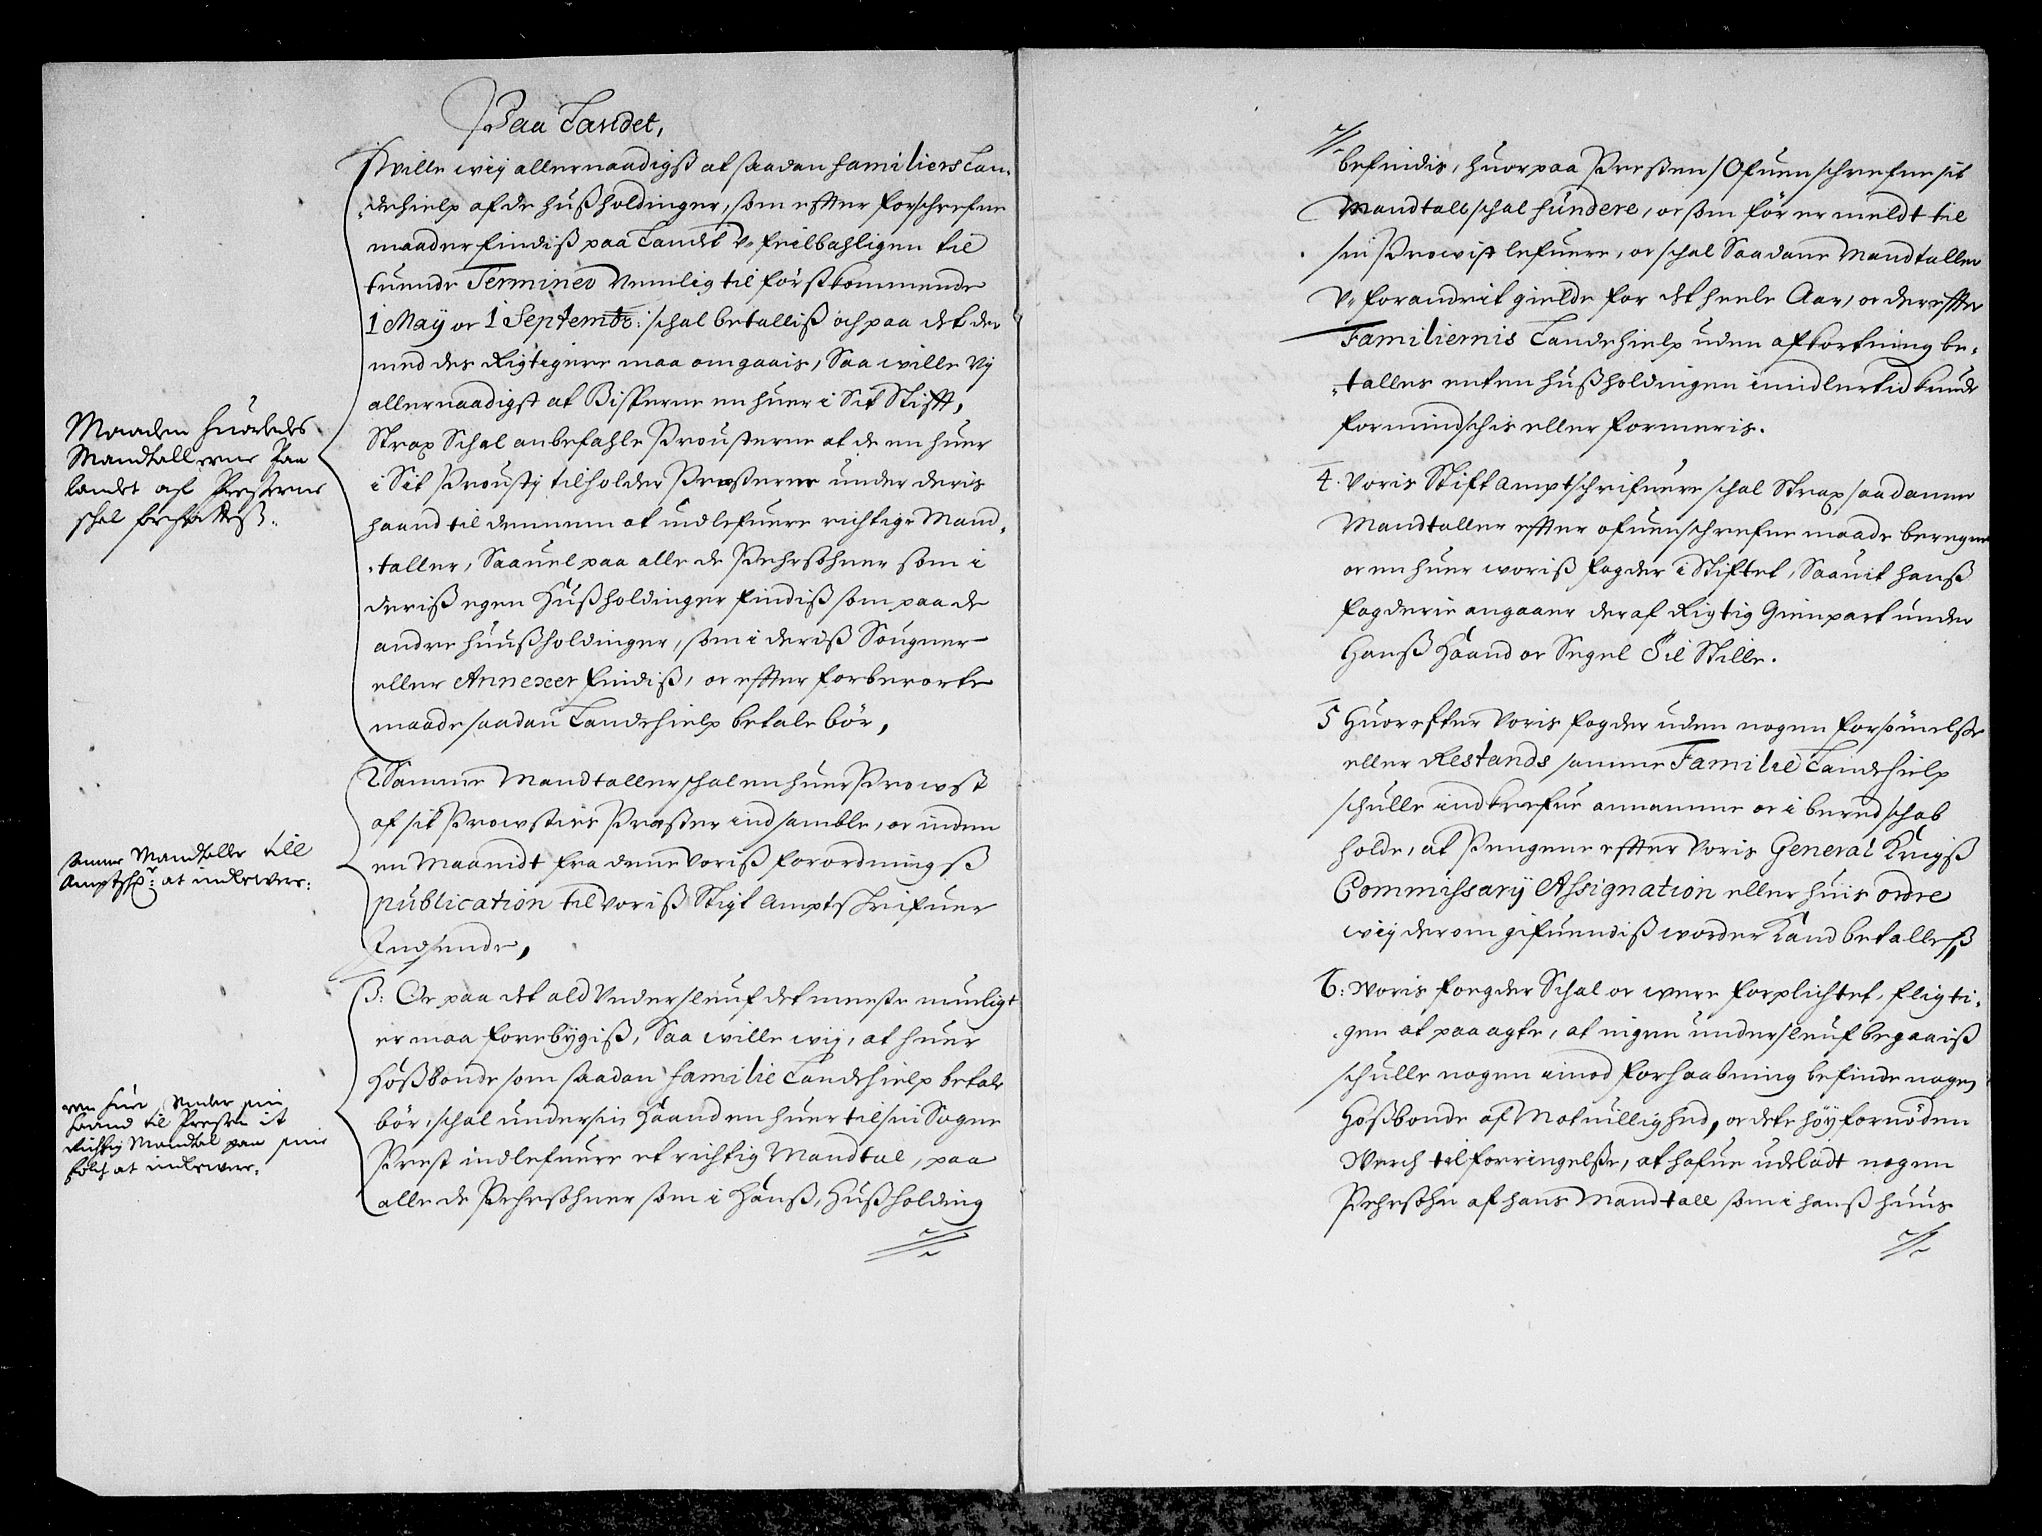 Paa Landet,
1 wille wij allernaadigst at saadan familiers Lan-
dehielp af de hußholdinger, som effter forschrefne
maader findiß paa Landt V-feilbahligen til
tuende Terminer Nemlig til förstkommende
1 Maÿ oc 1 Septembr: schal betalliß och paa det der
med des Rigtigere maa omgaais, Saa wille Vij
allernaadigst at Bisperne en huer i Sit Stifft,
Strax Schal anbefahle Prousterne at de en huer
i Sit Prousti tilholder Præsterne under deris
haand til dennem at indlefuere richtige Mand-
taller, Saauel paa alle de Pehrsohner som i
deriß egen Hußholdinger findiß som paa de
andre huußholdinger, som i deriß Sougner
eller Annexer findiß, oc effter forberorte
maade saadan Landehielp betale bör,
Maaden huorledes
Mandtallerne Paa
landet af Presterne
schal forfatteß.
2 Samme Mandtaller schal en huer Prowst
af sit Prowsties Præster indsamble, oc inden
en Maanidt fra denne Voriß forordningß
publication til Voriß Stigt Amptskrifuer
Indsende,
Samme Mandtaller till
Amptschr: at indlevere:
3: Oc paa det ald Undersleuf det meeste mueligt
er maa forebygiß, Saa wille wij, at huer
Hoßbonde som saadan familie Landehielp betale
bör, schal under sin Haand en huer til sin Sogne
Prest indlefuere et richtig Mandtal, paa
alle de Pehrsohner som i Hanß Hußholding
een huer Under sin
Haand til Presten it
Richtig Mandtal paa sine
folch at indlevere.
befindis, huor paa Presten Ofuenschrefne sit
Mandtall schal fundere, oc som för er meldt til
sin Prowist lefuere, oc schal Saadane Mandtaller
V-forandrit gielde for det heele Aar, oc der effter
Familiernis Landehielp uden afkortning be-
talles enten hußholdingen imidlertid kunde
formindschis eller formeris.
4. Voris Stift Amptschrifuere schal Strax saadanne
Mandtaller effter ofuenschrefne maade beregne
oc en huer woriß fogder i Stiftet, Saauit hanß
fogderie angaaer der af Rigtig Gienpart under
Hanß Haand oc Segel Til Stille.
5 Huor efter Voris fogder uden nogen forsömelse
eller Restands samme Familie Landehielp
schulle indkrefue annamme oc i beredschab
holde, at Pengene effter Voris General Krigß
Commissarÿ Assignation eller huis ordre
wij der om gifuendiß worder Kand betalleß,
6: Woris foegder Schal oc were forplichtet, fligti-
gen at paa agte, at ingen undersleuf begaaiß
schulle nogen imod forhaabning befinde nogen
Hoßbonde af Motuillighed, oc dete höyfornöden
Werch til forringelße, at hafue udeladt nogen
Pehrsohn af hans Mandtall som i hanß huus